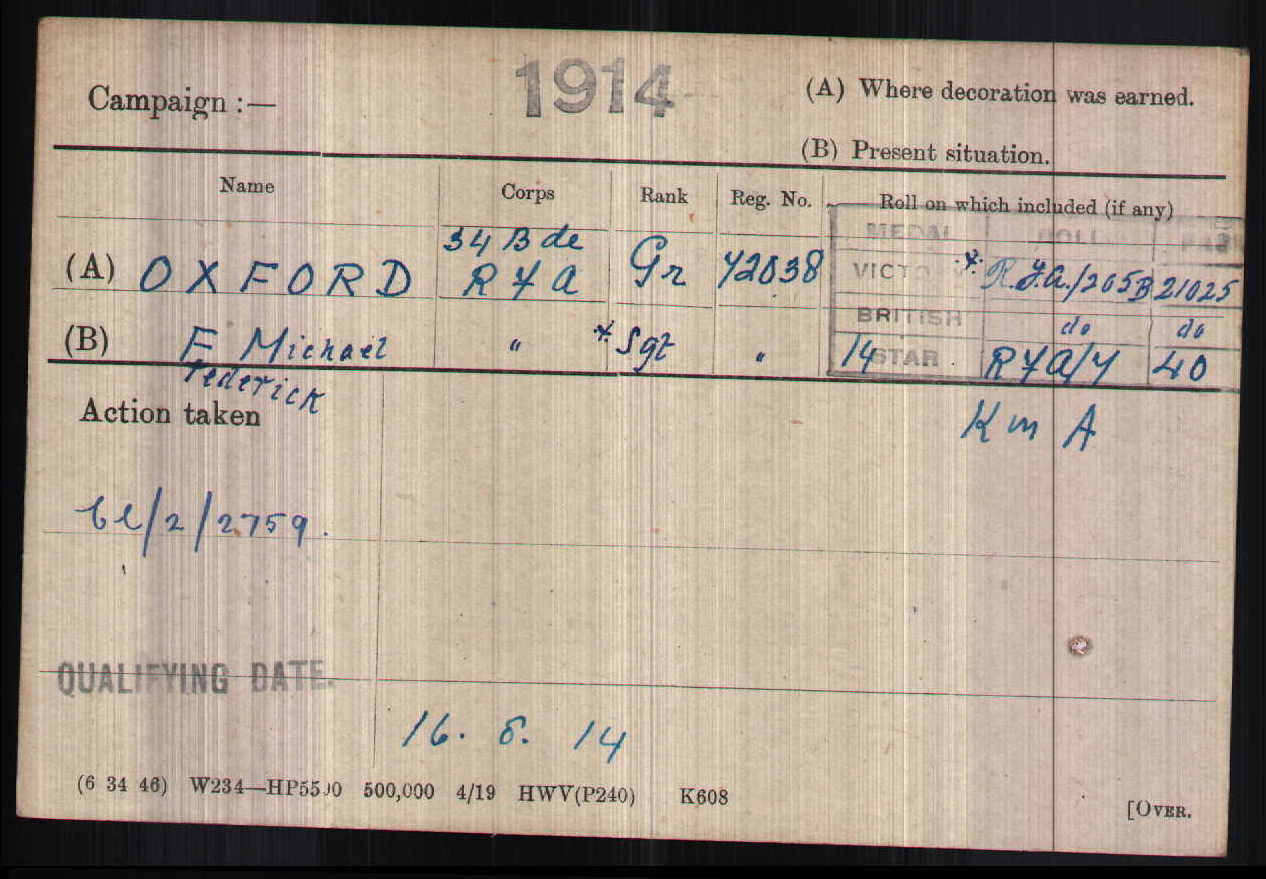 Campaign :— 1914 (A) Where decoration was earned.
(B) Present situation.
Name Corps Rank Reg. No. Roll on which included (if any)
MEDAL ROLL PAGE
34 Bde
(A) OXFORD RFA Gr 42038 VICTO *R.F.A./265B 21025
BRITISH do do
(B) F Michael " *Sgt " 14 STAR RFA/4 40
rederick
Action taken K in A
cl/2/2759.
QUALIFYING DATE.
16. 8. 14
(6 34 46) W234—HP5590 500,000 4/19 HWV(P240) K608
[OVER.